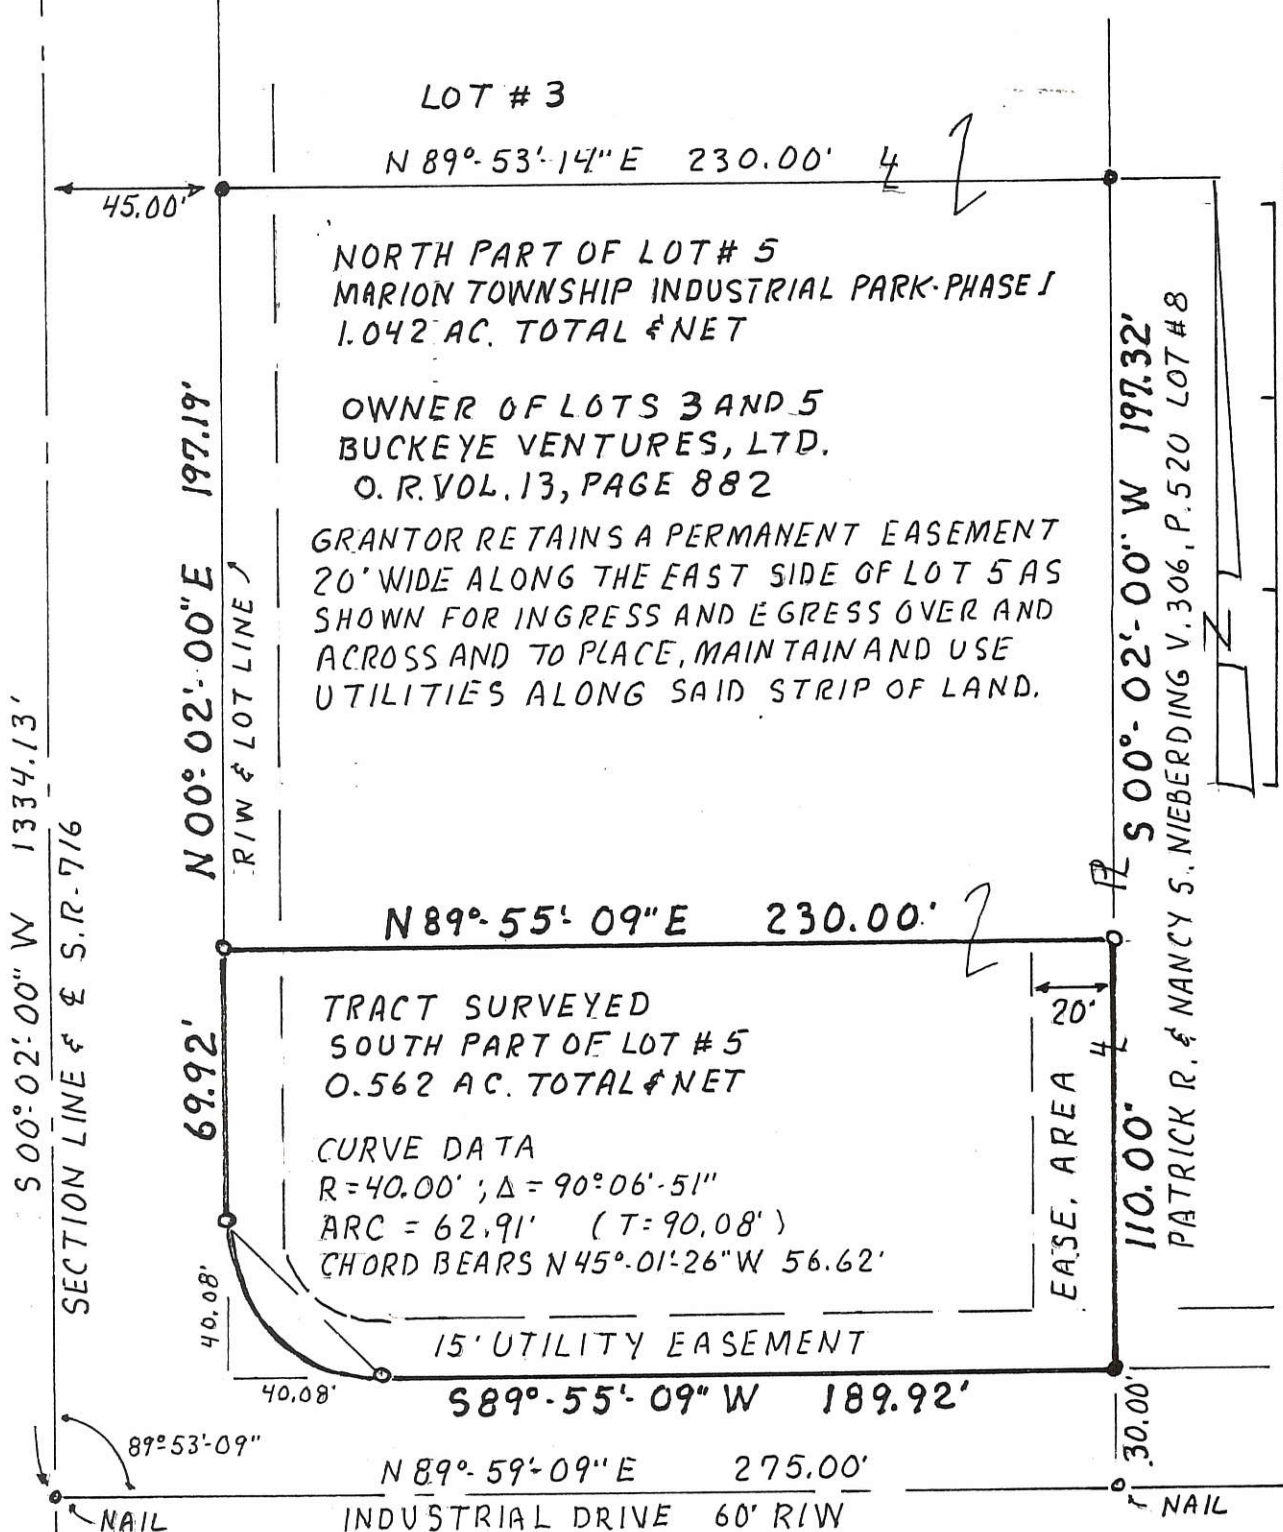 LOT # 3
N 89°-53'-14" E 230.00'
45.00'
NORTH PART OF LOT # 5
MARION TOWNSHIP INDUSTRIAL PARK-PHASE I
1.042 AC. TOTAL & NET
OWNER OF LOTS 3 AND 5
BUCKEYE VENTURES, LTD.
O. R. VOL. 13, PAGE 882
GRANTOR RETAINS A PERMANENT EASEMENT
20' WIDE ALONG THE EAST SIDE OF LOT 5 AS
SHOWN FOR INGRESS AND EGRESS OVER AND
ACROSS AND TO PLACE, MAINTAIN AND USE
UTILITIES ALONG SAID STRIP OF LAND.
N 00°-02'-00" E 197.19'
R/W & LOT LINE
S 00°-02'-00" W 1334.13'
SECTION LINE & ℄ S.R.-716
S 00°-02'-00" W 197.32'
PATRICK R. & NANCY S. NIEBERDING V. 306, P. 520 LOT #8
N
PL
N 89°-55'-09" E 230.00'
69.92'
TRACT SURVEYED
SOUTH PART OF LOT # 5
0.562 AC. TOTAL & NET
20'
EASE. AREA
110.00'
CURVE DATA
R=40.00' ; Δ = 90°06'-51"
ARC = 62.91' (T=90.08')
CHORD BEARS N 45°-01'-26" W 56.62'
40.08'
40.08'
15' UTILITY EASEMENT
S 89°-55'-09" W 189.92'
30.00'
89°53'-09"
N 89°-59'-09" E 275.00'
NAIL
INDUSTRIAL DRIVE 60' R/W
NAIL